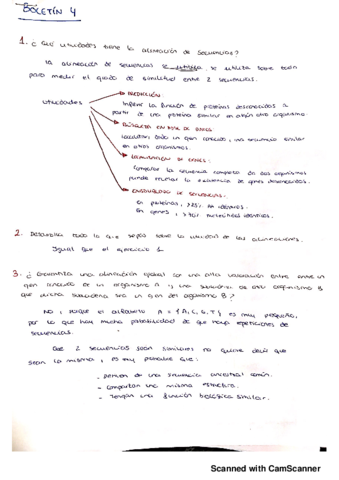 BOLETÍN 4
1. ¿Qué utilidades tiene la alineación de secuencias?
La alineación de secuencias se utiliza sobre todo
para medir el grado de similitud entre 2 secuencias.
utilidades
PREDICCIÓN:
Inferir la función de proteínas desconocidas a
partir de una proteína similar en algún otro organismo
BÚSQUEDA EN BASE DE DATOS
localizar dado un gen conocido, una secuencia similar
en otros organismos.
LOCALIZACIÓN DE GENES:
Comparar la secuencia completa de dos organismos
puede revelar la existencia de genes desconocidos.
ENSAMBLADO DE SECUENCIAS.
En proteínas, >25% aa idénticos.
En genes, >70% nucleótidos idénticos.
2. Desarrolla todo lo que sepas sobre la utilidad de los alineaciones.
Igual que el ejercicio 1.
3. ¿Garantiza una alineación global con una alta valoración entre un
gen conocido de un organismo A y una subcadena de otro organismo B
que dicha subcadena sea un gen del organismo B?
No, porque el alfabeto A = {A, C, G, T} es muy pequeño,
por lo que hay mucha probabilidad de que haya repeticiones de
secuencias.
Que 2 secuencias sean similares no quiere decir que
sean la misma, es muy probable que:
- Deriven de una secuencia ancestral común.
- Compartan una misma estructura.
- Tengan una función biológica similar.
Scanned with CamScanner